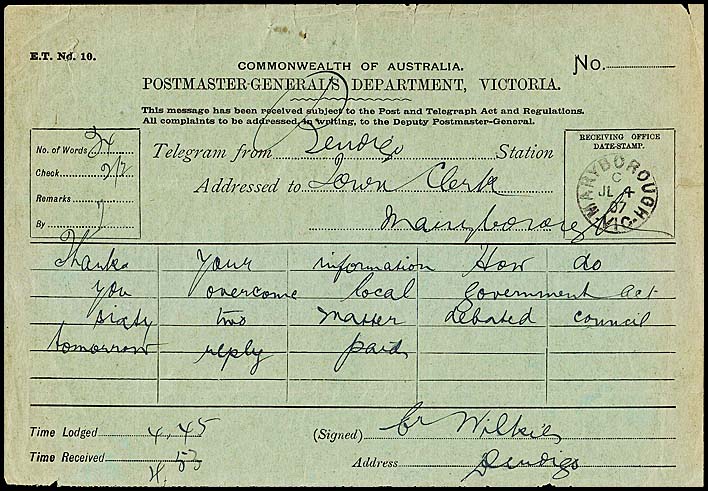 E.T. No. 10.
COMMONWEALTH OF AUSTRALIA.
No.
POSTMASTER-GENERAL'S DEPARTMENT, VICTORIA.
This message has been received subject to the Post and Telegraph Act and Regulations.
All complaints to be addressed, in writing, to the Deputy Postmaster-General.
No. of Words 24
Check 2/2
Remarks
By
Telegram from Bendigo Station
Addressed to Town Clerk
Maryborough
RECEIVING OFFICE
DATE-STAMP.
MARYBOROUGH VIC
C
JL 4
07
Thanks your information How do
you overcome local government act
sixty two matter debated council
tomorrow reply paid
Time Lodged 4.45
(Signed) Cr Wilkie
Time Received 4.53
Address Bendigo